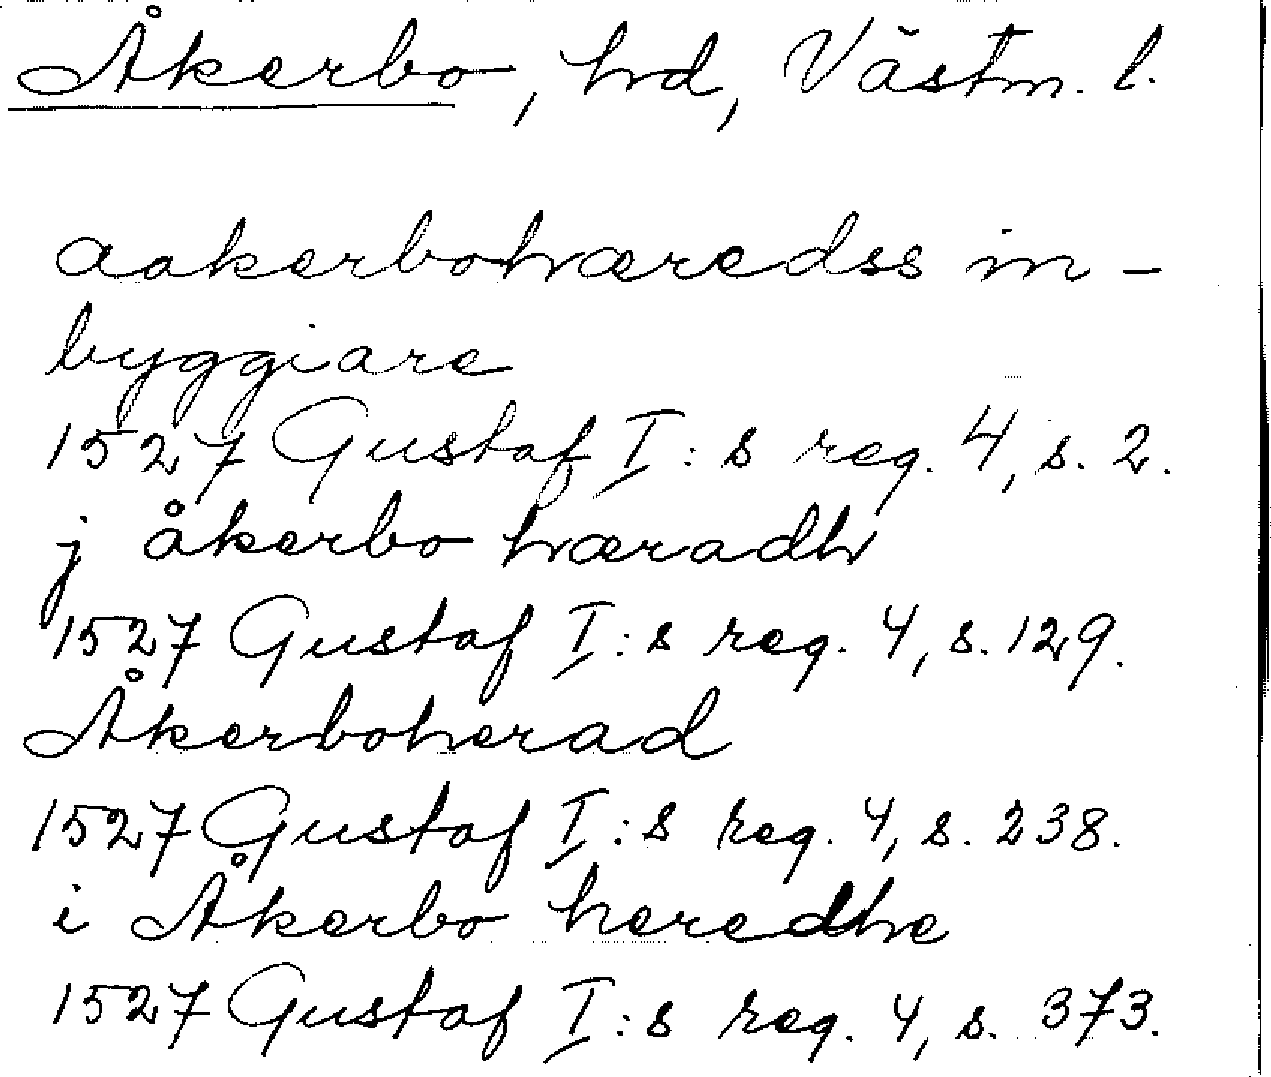 Åkerbo, hd, Västm. l.
aakerbohæredss in-
byggiare
1527 Gustaf I:s reg. 4, s. 2.
j åkerbo hæradh
1527 Gustaf I:s reg. 4, s. 129.
Åkerboherad
1527 Gustaf I:s reg. 4, s. 238.
i Åkerbo heredhe
1527 Gustaf I:s reg. 4, s. 373.